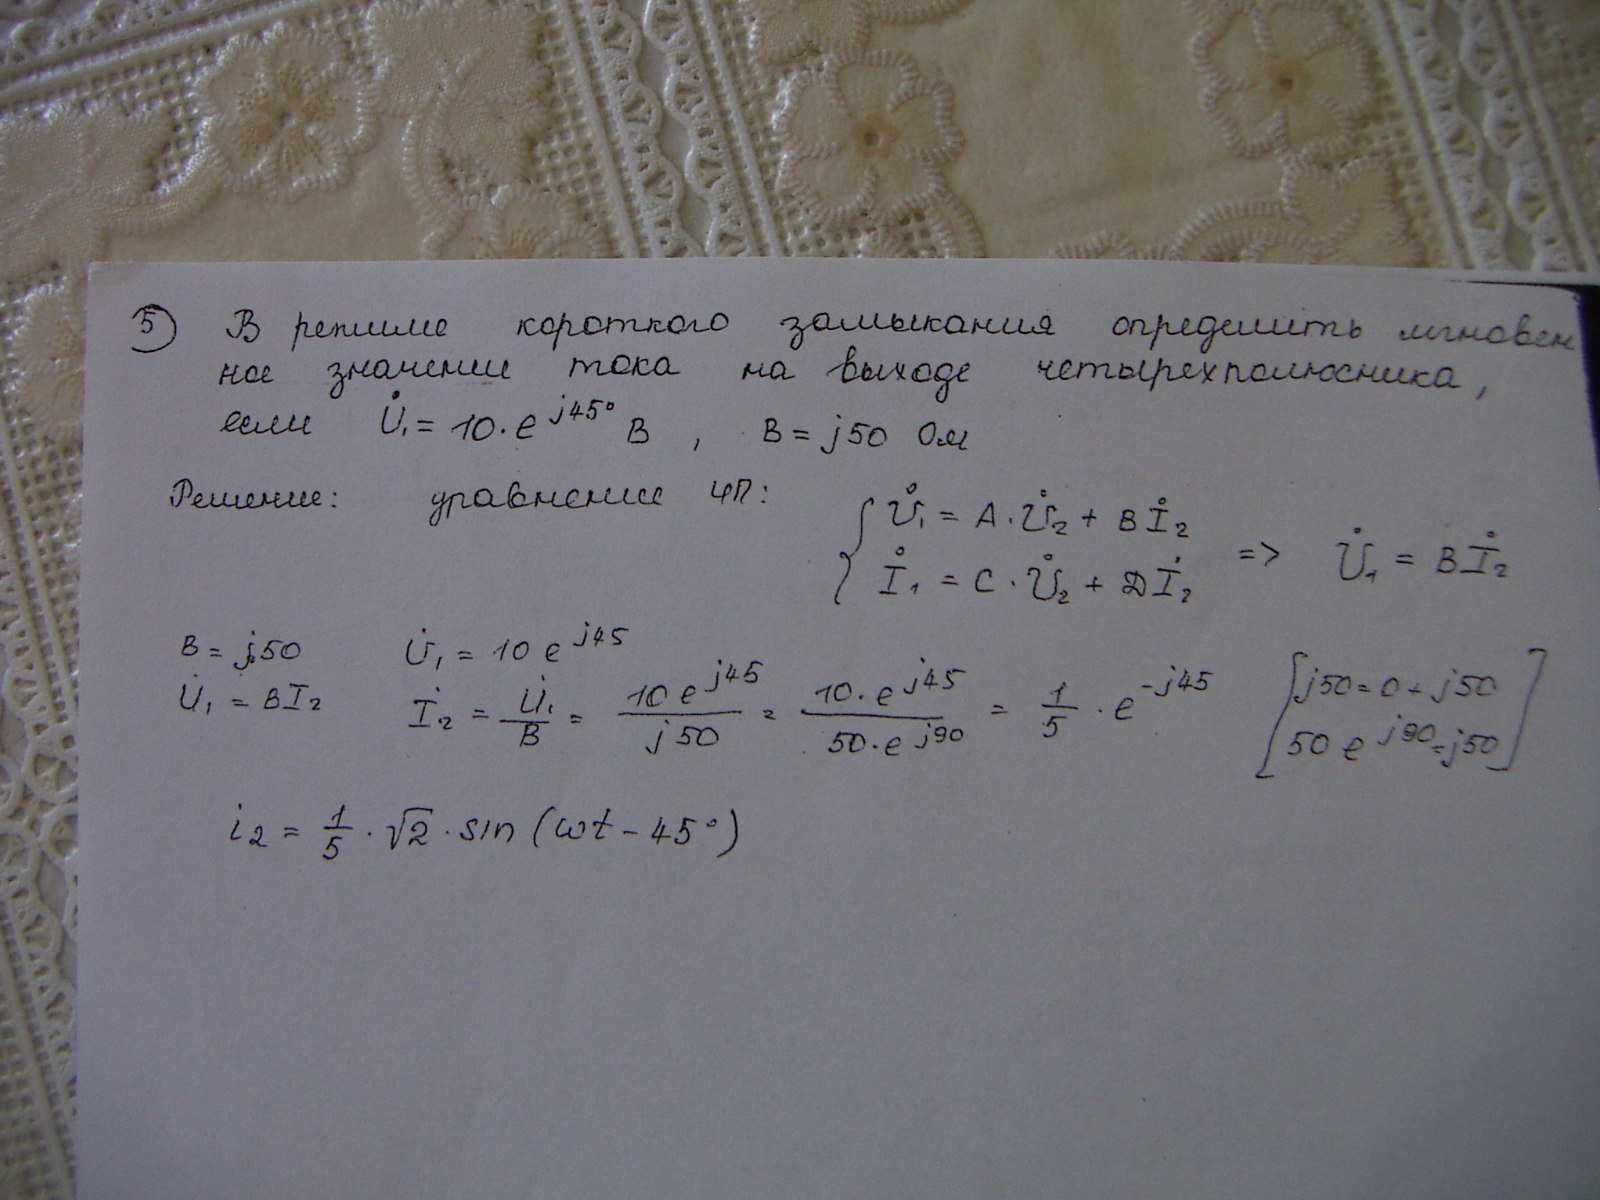 5 В режиме короткого замыкания определить мгновен
ное значение тока на выходе четырехполюсника,
если U̇₁ = 10·e^{j45°} В , B = j50 Ом
Решение: уравнение ЧП:
{ U̇₁ = A·U̇₂ + Bİ₂
İ₁ = C·U̇₂ + Dİ₂ => U̇₁ = Bİ₂
B = j50 U̇₁ = 10 e^{j45}
U̇₁ = Bİ₂ İ₂ = U̇₁/B = 10 e^{j45}/j50 = 10·e^{j45}/50·e^{j90} = 1/5 · e^{-j45} [j50 = 0 + j50
50 e^{j90} = j50]
i₂ = 1/5 · √2 · sin (ωt - 45°)